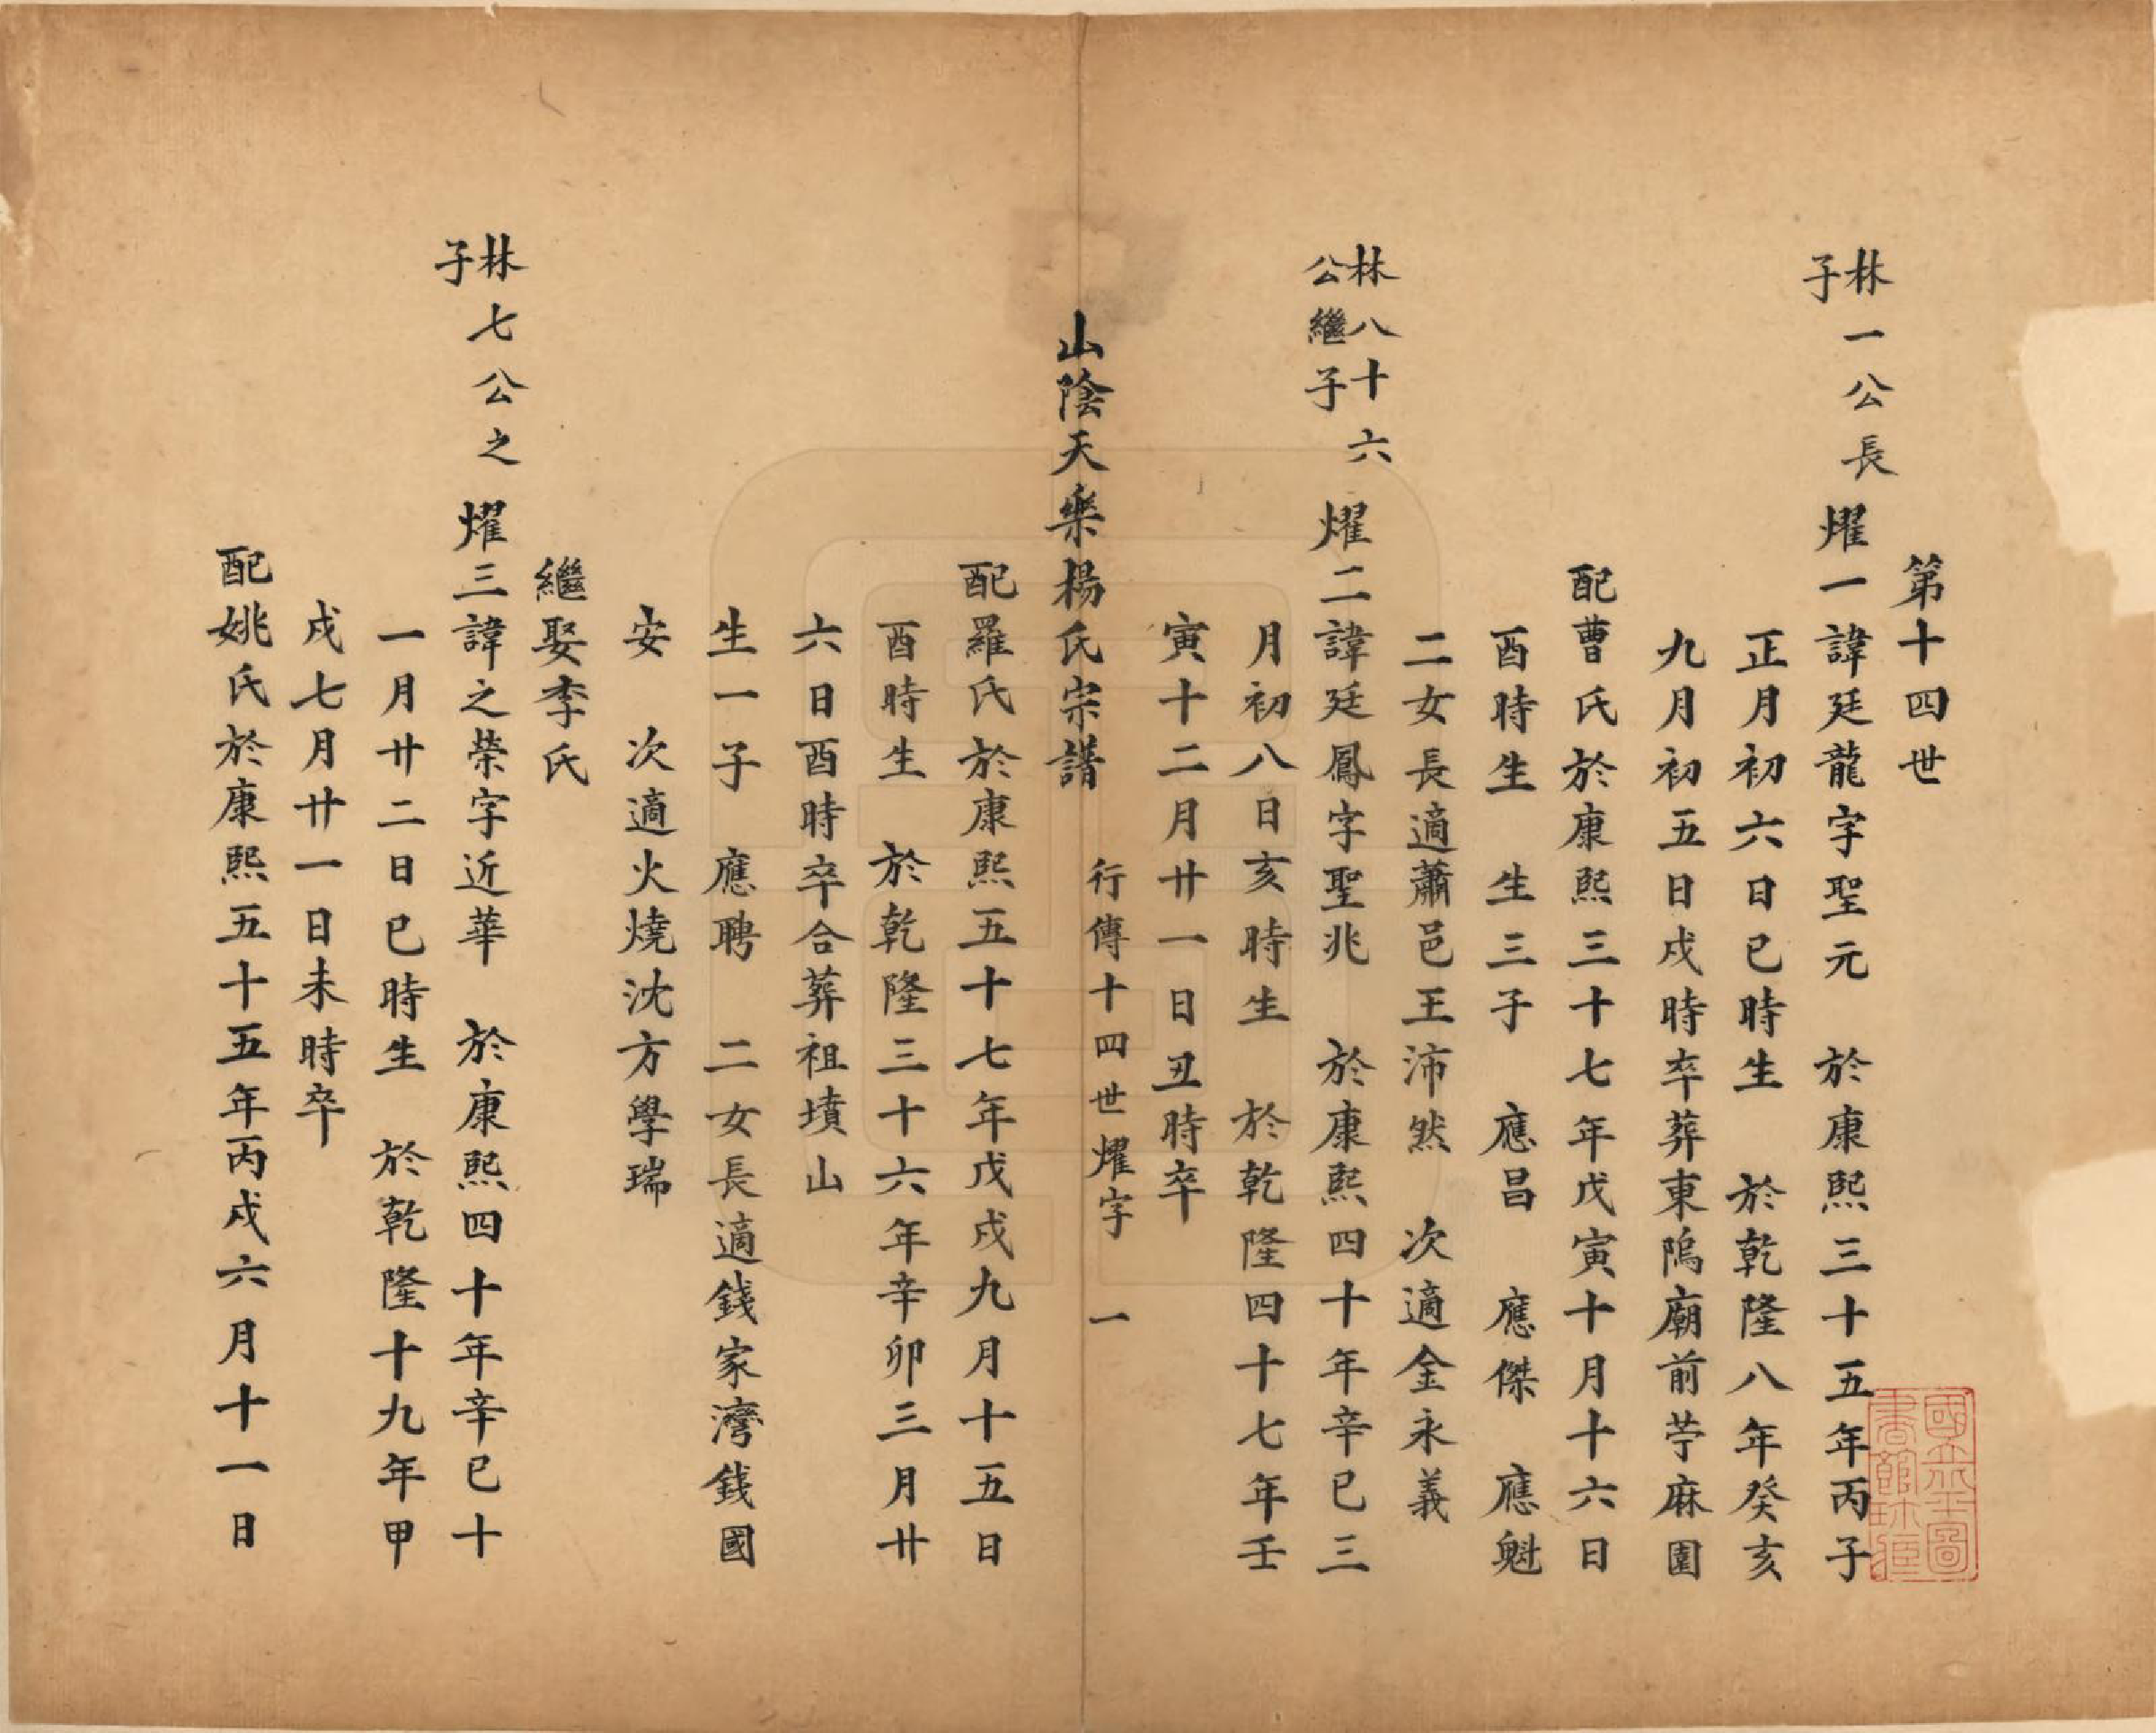 第十四世
林一公長
子
燿一諱廷龍字聖元　於康熙三十五年丙子
正月初六日巳時生　於乾隆八年癸亥
九月初五日戍時卒葬東隖廟前苧麻園
配曹氏於康熙三十七年戊寅十月十六日
酉時生　生三子　應昌　應傑　應魁
二女長適蕭邑王沛然　次適金永義
林八十六
公繼子
燿二諱廷鳳字聖兆　於康熙四十年辛巳三
月初八日亥時生　於乾隆四十七年壬
寅十二月廿一日丑時卒
山陰天樂楊氏宗譜　行傳十四世燿字　一
配羅氏於康熙五十七年戊戍九月十五日
酉時生　於乾隆三十六年辛卯三月廿
六日酉時卒合葬祖墳山
生一子　應聘　二女長適錢家灣錢國
安　次適火燒沈方學瑞
繼娶李氏
林七公之
子
燿三諱之榮字近華　於康熙四十年辛巳十
一月廿二日巳時生　於乾隆十九年甲
戍七月廿一日未時卒
配姚氏於康熙五十五年丙戍六月十一日
國立北平圖
書館珍藏